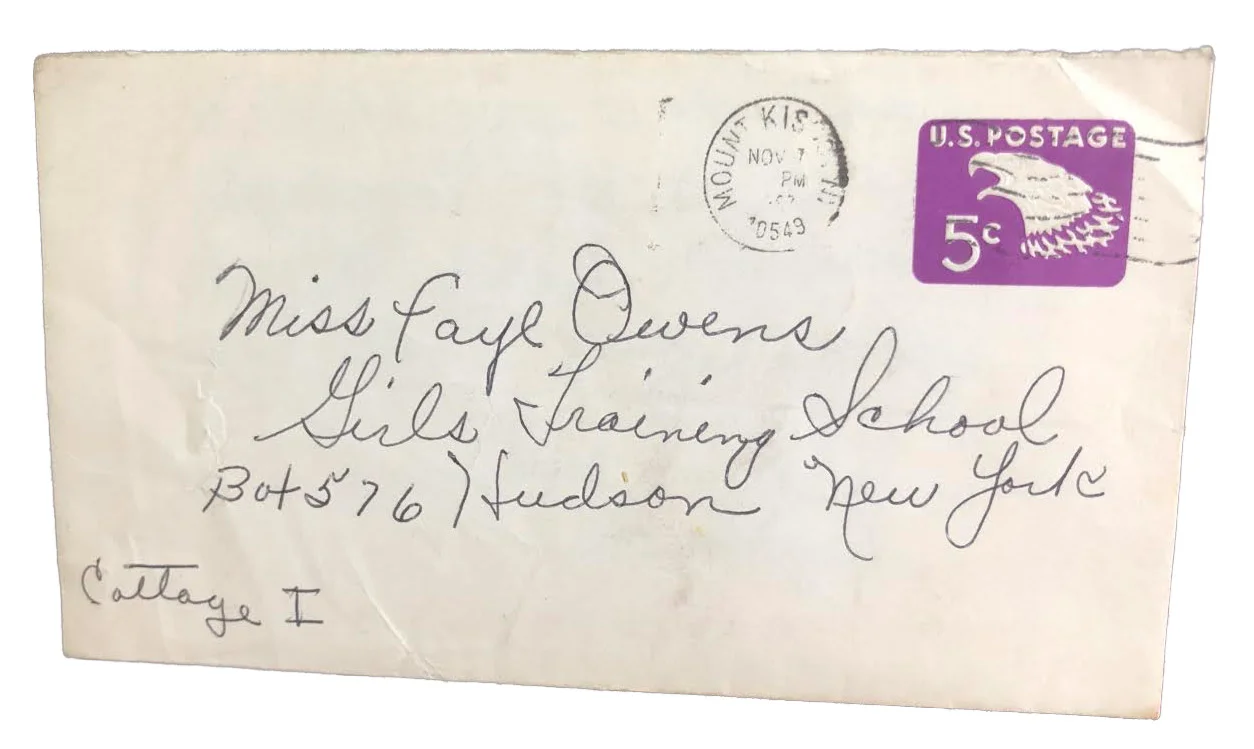 MOUNT KIS
NOV 7
PM
10549
U.S. POSTAGE
5c
Miss Faye Owens
Girls Training School
Box 576 Hudson New York
Cottage I